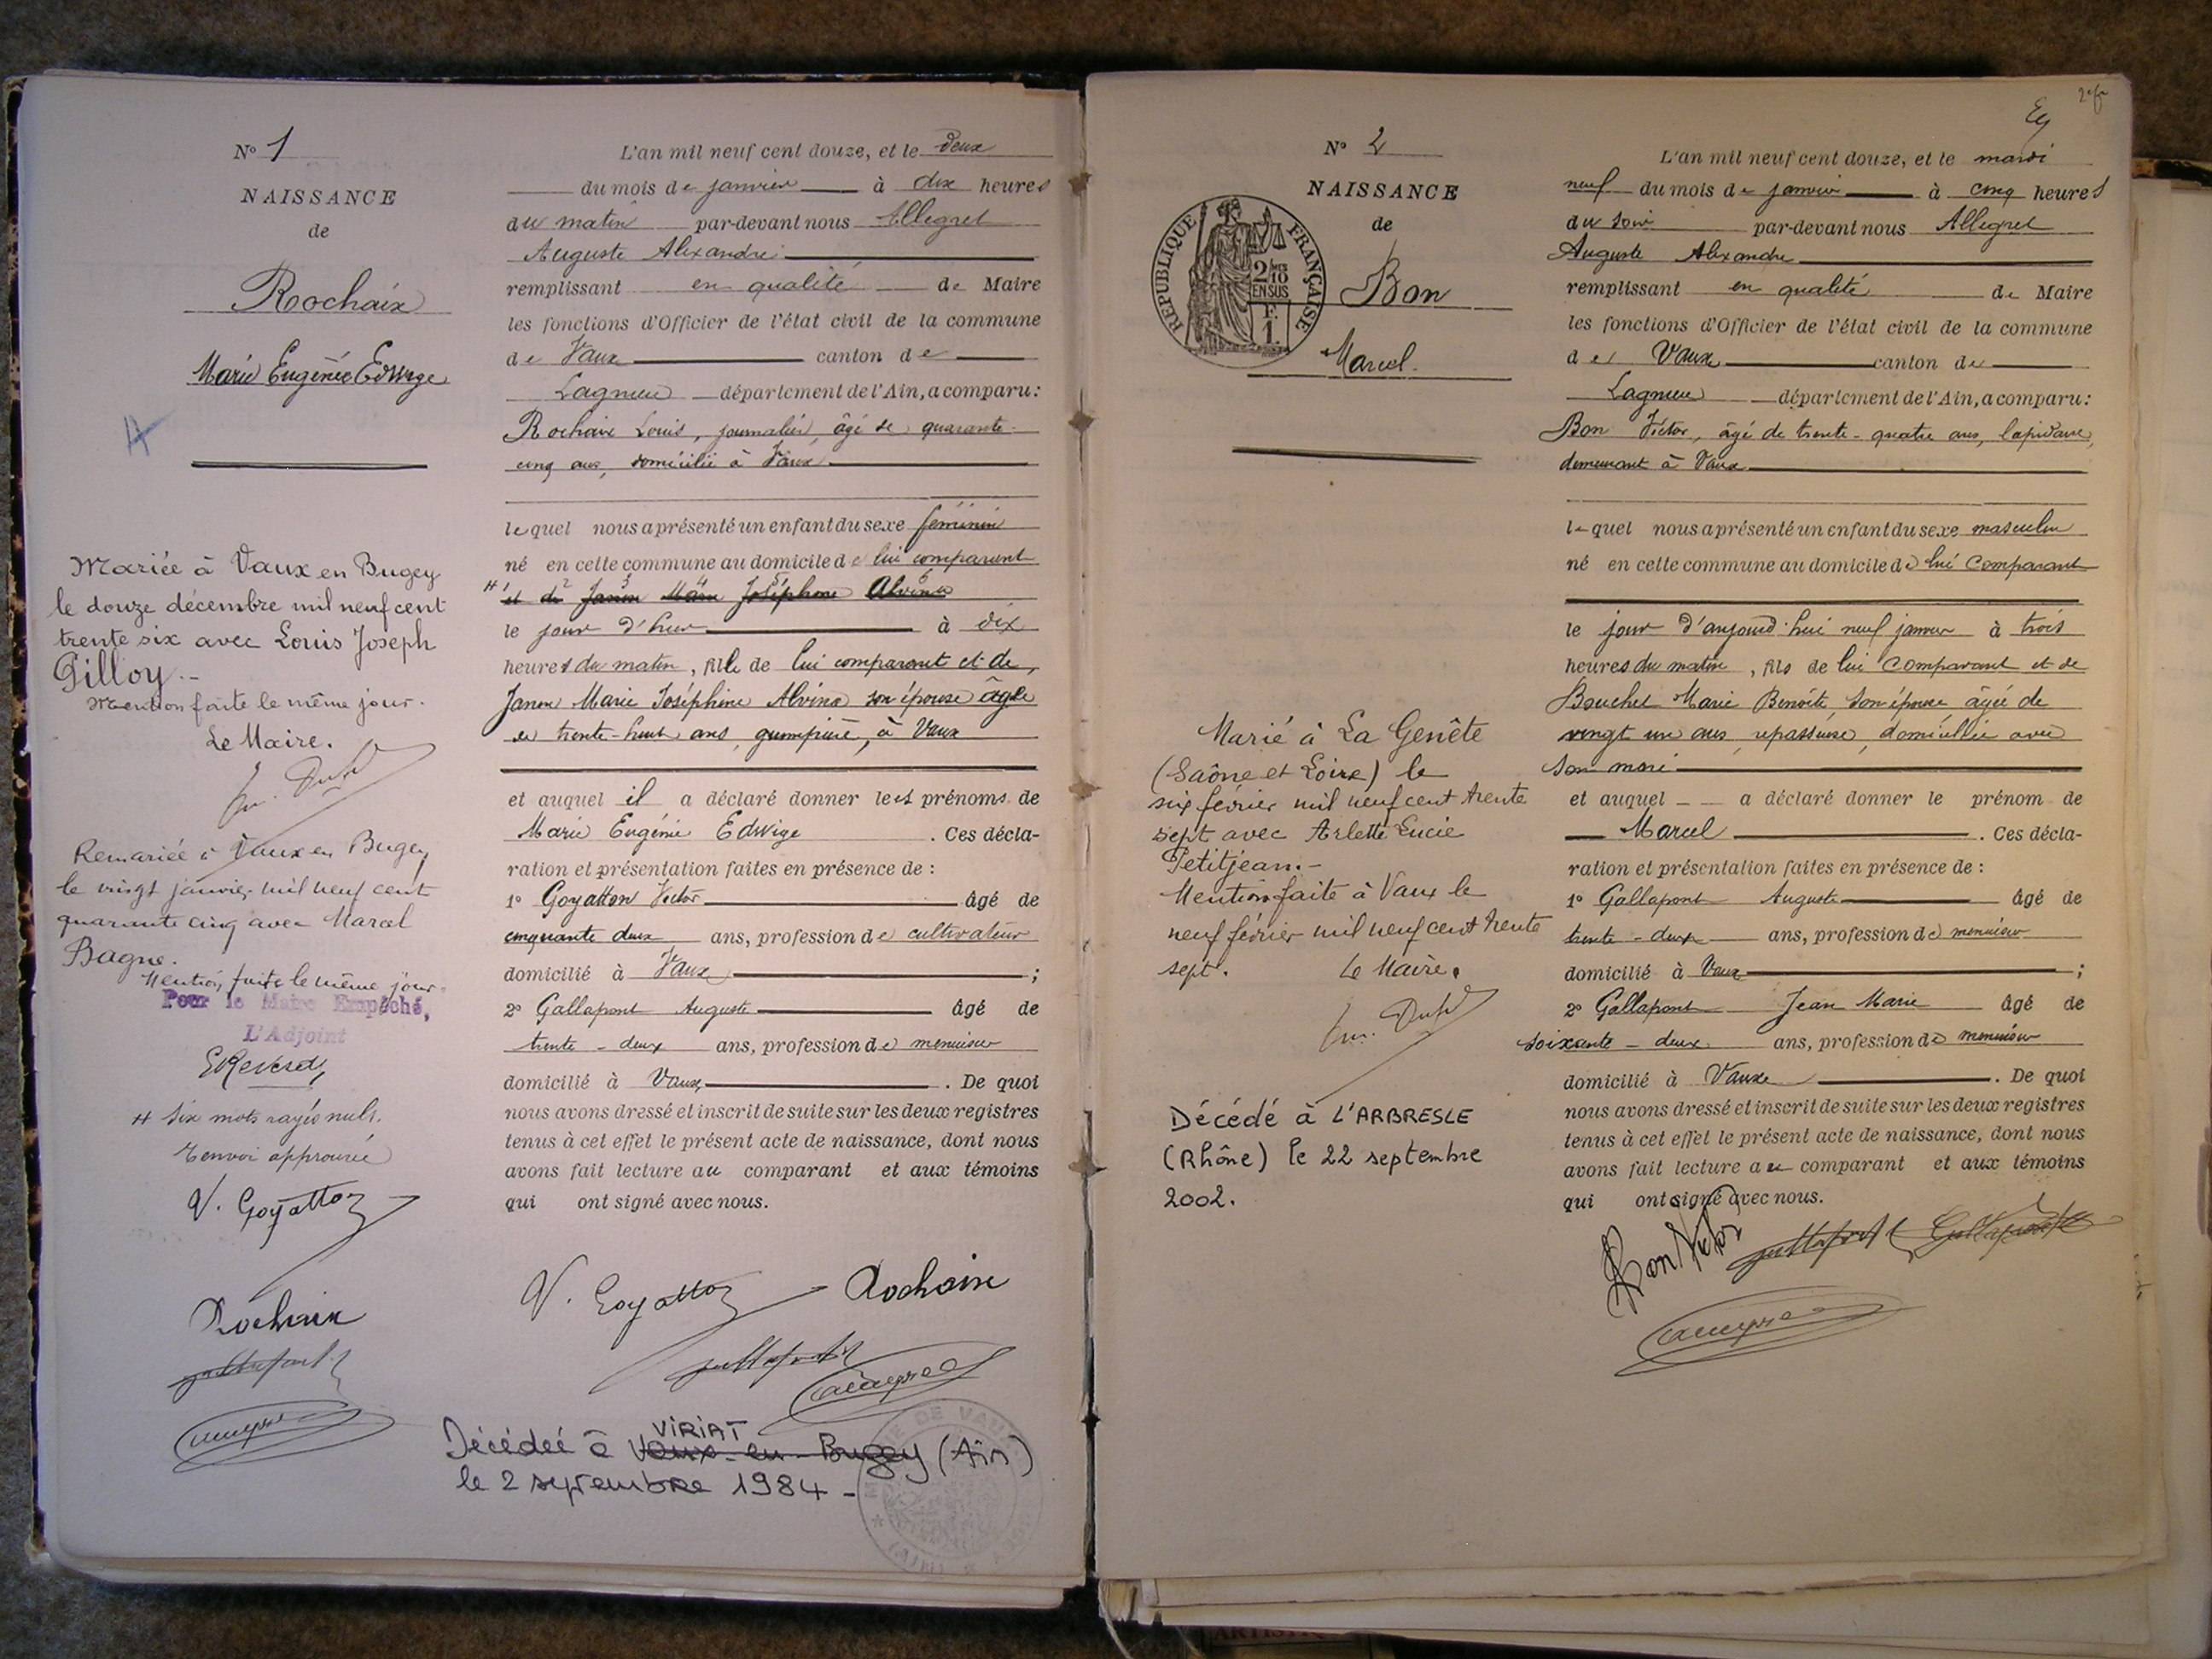 N° 1
NAISSANCE
de
Rochaix
Marie Eugénie Edwige
Mariée à Vaux en Bugey
le douze décembre mil neuf cent
trente six avec Louis Joseph
Gilloy.-
Mention faite le même jour.
Le Maire.
Remariée à Vaux en Bugey
le vingt janvier mil neuf cent
quarante cinq avec Marcel
Bagne.
Mention faite le même jour.
Pour le Maire Empêché,
L'Adjoint
# Six mots rayés nuls.
Renvoi approuvé
V. Goyatton
Rochaix
L'an mil neuf cent douze, et le deux
du mois de janvier à dix heures
du matin par-devant nous Allegret
Auguste Alexandre
remplissant en qualité de Maire
les fonctions d'Officier de l'état civil de la commune
de Vaux canton de
Lagnieu département de l'Ain, a comparu:
Rochaix Louis, journalier, âgé de quarante-
cinq ans, domicilié à Vaux
lequel nous a présenté un enfant du sexe féminin
né en cette commune au domicile de lui comparant
# et de Janon Marie Joséphine Alvina
le jour d'hier à dix
heures du matin, fille de lui comparant et de
Janon Marie Joséphine Alvina son épouse âgée
de trente-huit ans, à Vaux
et auquel il a déclaré donner les prénoms de
Marie Eugénie Edwige. Ces décla-
ration et présentation faites en présence de :
1° Goyatton Victor âgé de
cinquante deux ans, profession de cultivateur
domicilié à Vaux ;
2° Gallapont Auguste âgé de
trente-deux ans, profession de menuisier
domicilié à Vaux. De quoi
nous avons dressé et inscrit de suite sur les deux registres
tenus à cet effet le présent acte de naissance, dont nous
avons fait lecture au comparant et aux témoins
qui ont signé avec nous.
V. Goyatton Rochaix
Décédée à Vaux-en-Bugey VIRIAT (Ain)
le 2 septembre 1984 -
N° 2
NAISSANCE
de
RÉPUBLIQUE FRANÇAISE
2/10
EN SUS
F.
1.
Bon
Marcel.
Marié à La Genête
(Saône et Loire) le
six février mil neuf cent trente
sept avec Arlette Lucie
Petitjean.-
Mention faite à Vaux le
neuf février mil neuf cent trente
sept. Le Maire.
Décédé à L'ARBRESLE
(Rhône) le 22 septembre
2002.
L'an mil neuf cent douze, et le mardi
neuf du mois de janvier à cinq heures
du soir par-devant nous Allegret
Auguste Alexandre
remplissant en qualité de Maire
les fonctions d'Officier de l'état civil de la commune
de Vaux canton de
Lagnieu département de l'Ain, a comparu:
Bon Victor, âgé de trente-quatre ans, lapidaire,
demeurant à Vaux
lequel nous a présenté un enfant du sexe masculin
né en cette commune au domicile de lui comparant
le jour d'aujourd'hui neuf janvier à trois
heures du matin, fils de lui comparant et de
Bouchet Marie Benoîte, son épouse âgée de
vingt un ans, repasseuse, domiciliée avec
son mari
et auquel a déclaré donner le prénom de
Marcel. Ces décla-
ration et présentation faites en présence de :
1° Gallapont Auguste âgé de
trente-deux ans, profession de menuisier
domicilié à Vaux ;
2° Gallapont Jean Marie âgé de
soixante-deux ans, profession de menuisier
domicilié à Vaux. De quoi
nous avons dressé et inscrit de suite sur les deux registres
tenus à cet effet le présent acte de naissance, dont nous
avons fait lecture au comparant et aux témoins
qui ont signé avec nous.
Bon Victor